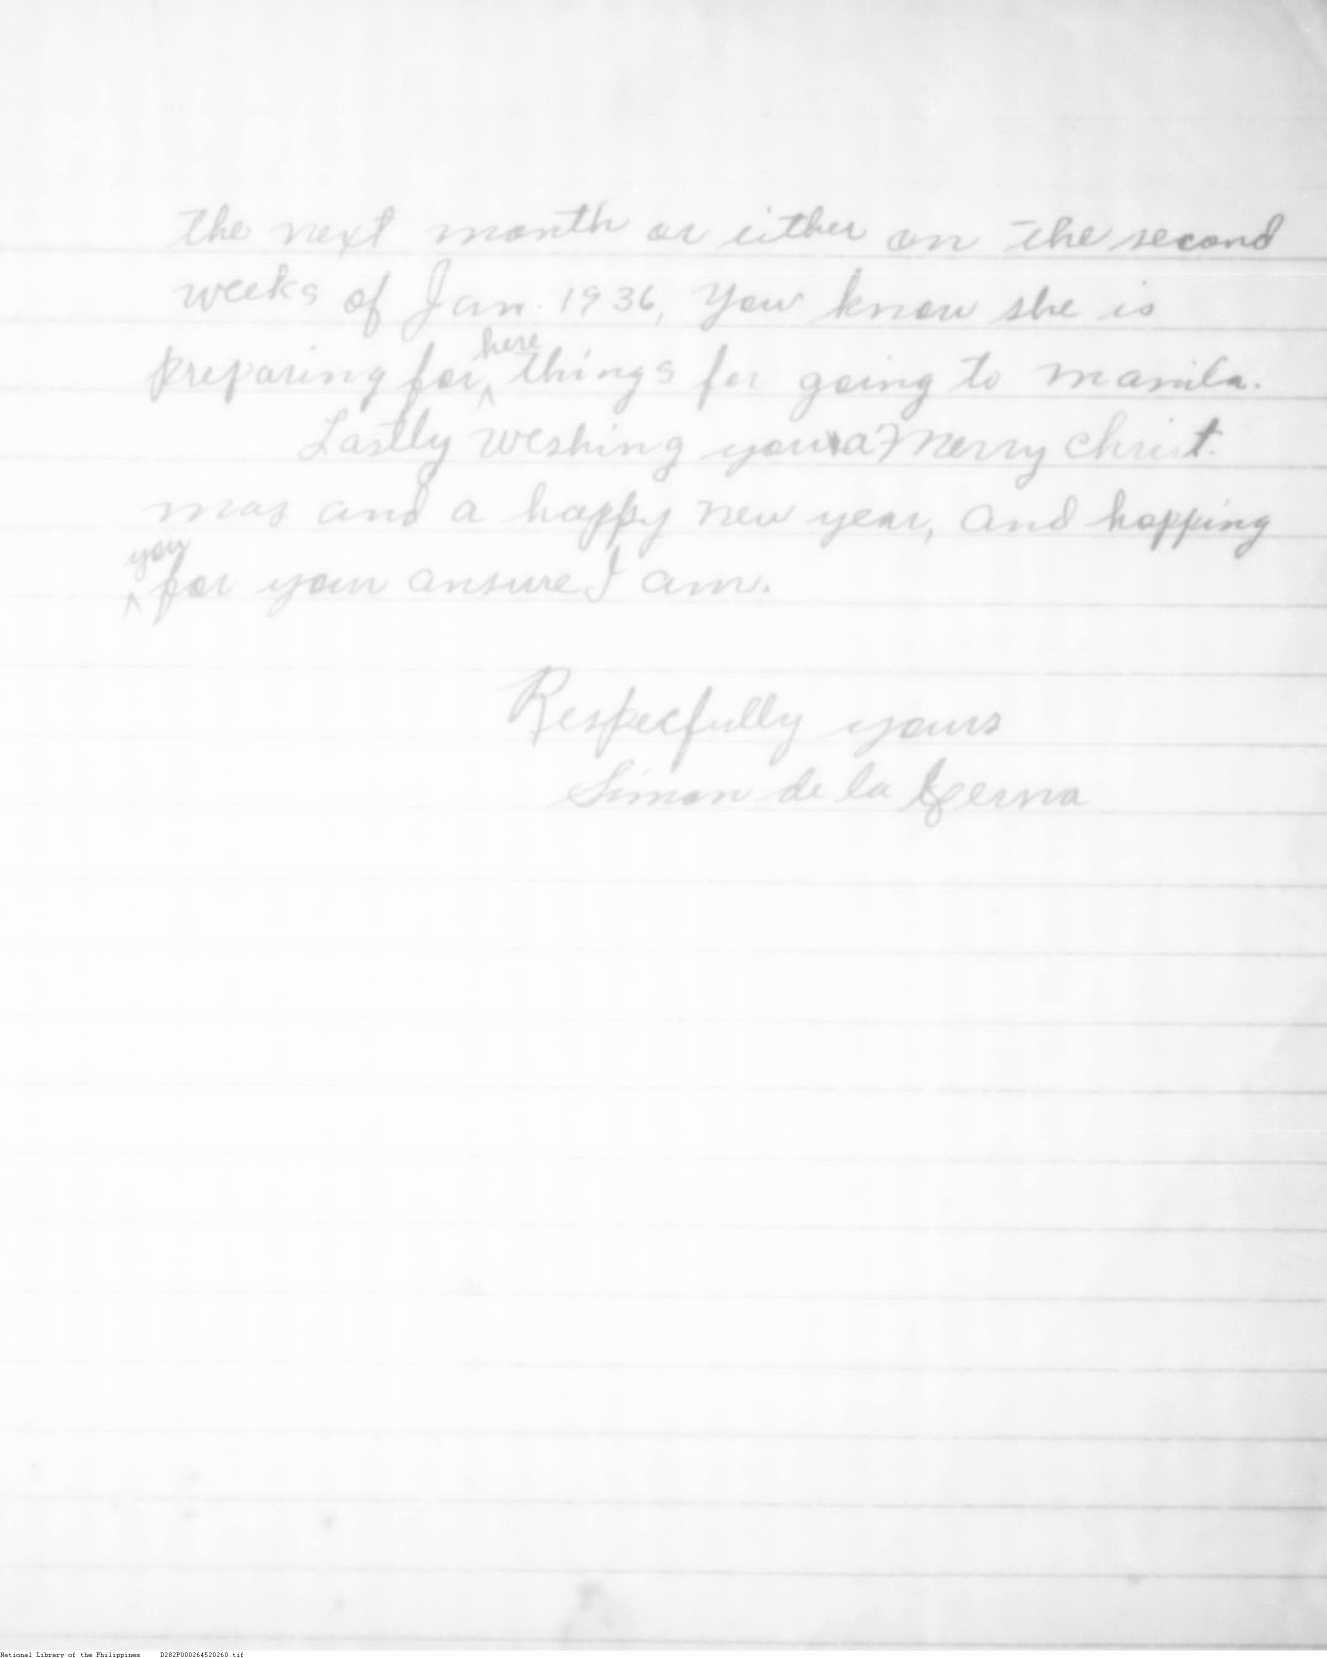 the next month or either on the second
weeks of Jan. 1936, You know she is
preparing for here things for going to manila.
Lastly weshing you a merry Christ
mas and a happy new year, and hopping
you for your ansure I am.
Respecfully yours
Simon de la Serna
National Library of the Philippines D282P000264520260.tif